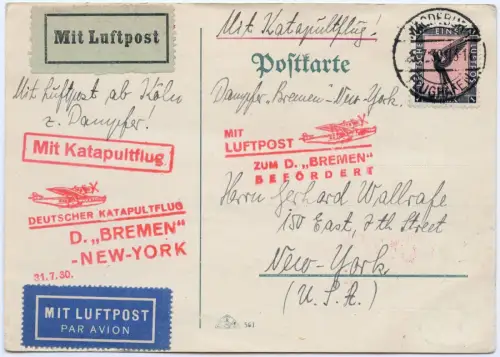 Mit Luftpost
Mit Katapultflug!
Postkarte
Mit Luftpost ab Köln
z. Dampfer.
Dampfer "Bremen" New-York.
Mit Katapultflug
MIT
LUFTPOST
ZUM D. „BREMEN"
BEFÖRDERT
DEUTSCHER KATAPULTFLUG
D. „BREMEN"
-NEW-YORK
31.7.30.
Herrn Gerhard Wallrafe
150 East, 7th Street
New-York
(U.S.A.)
MIT LUFTPOST
PAR AVION
561